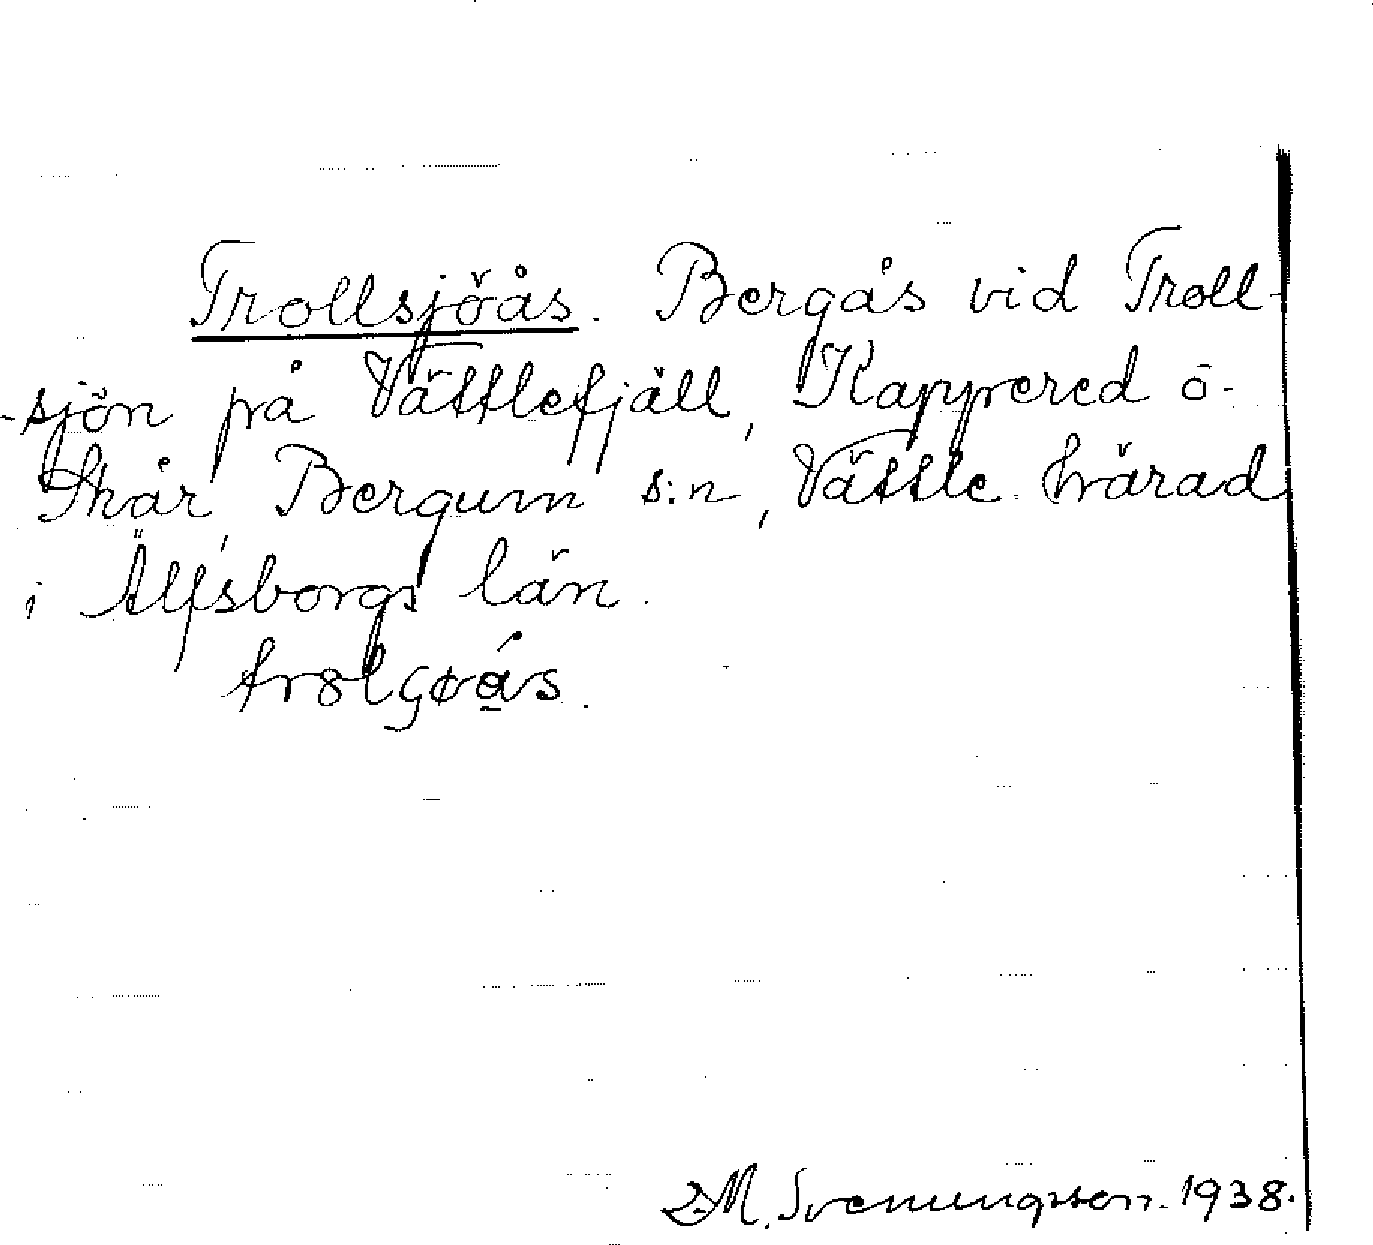 Trollsjöås. Bergås vid Troll-
-sjön på Vättlefjäll, Kappered o-
Skår, Bergum s:n, Vättle härad
i Älfsborgs län.
M. Svenungsson. 1938.